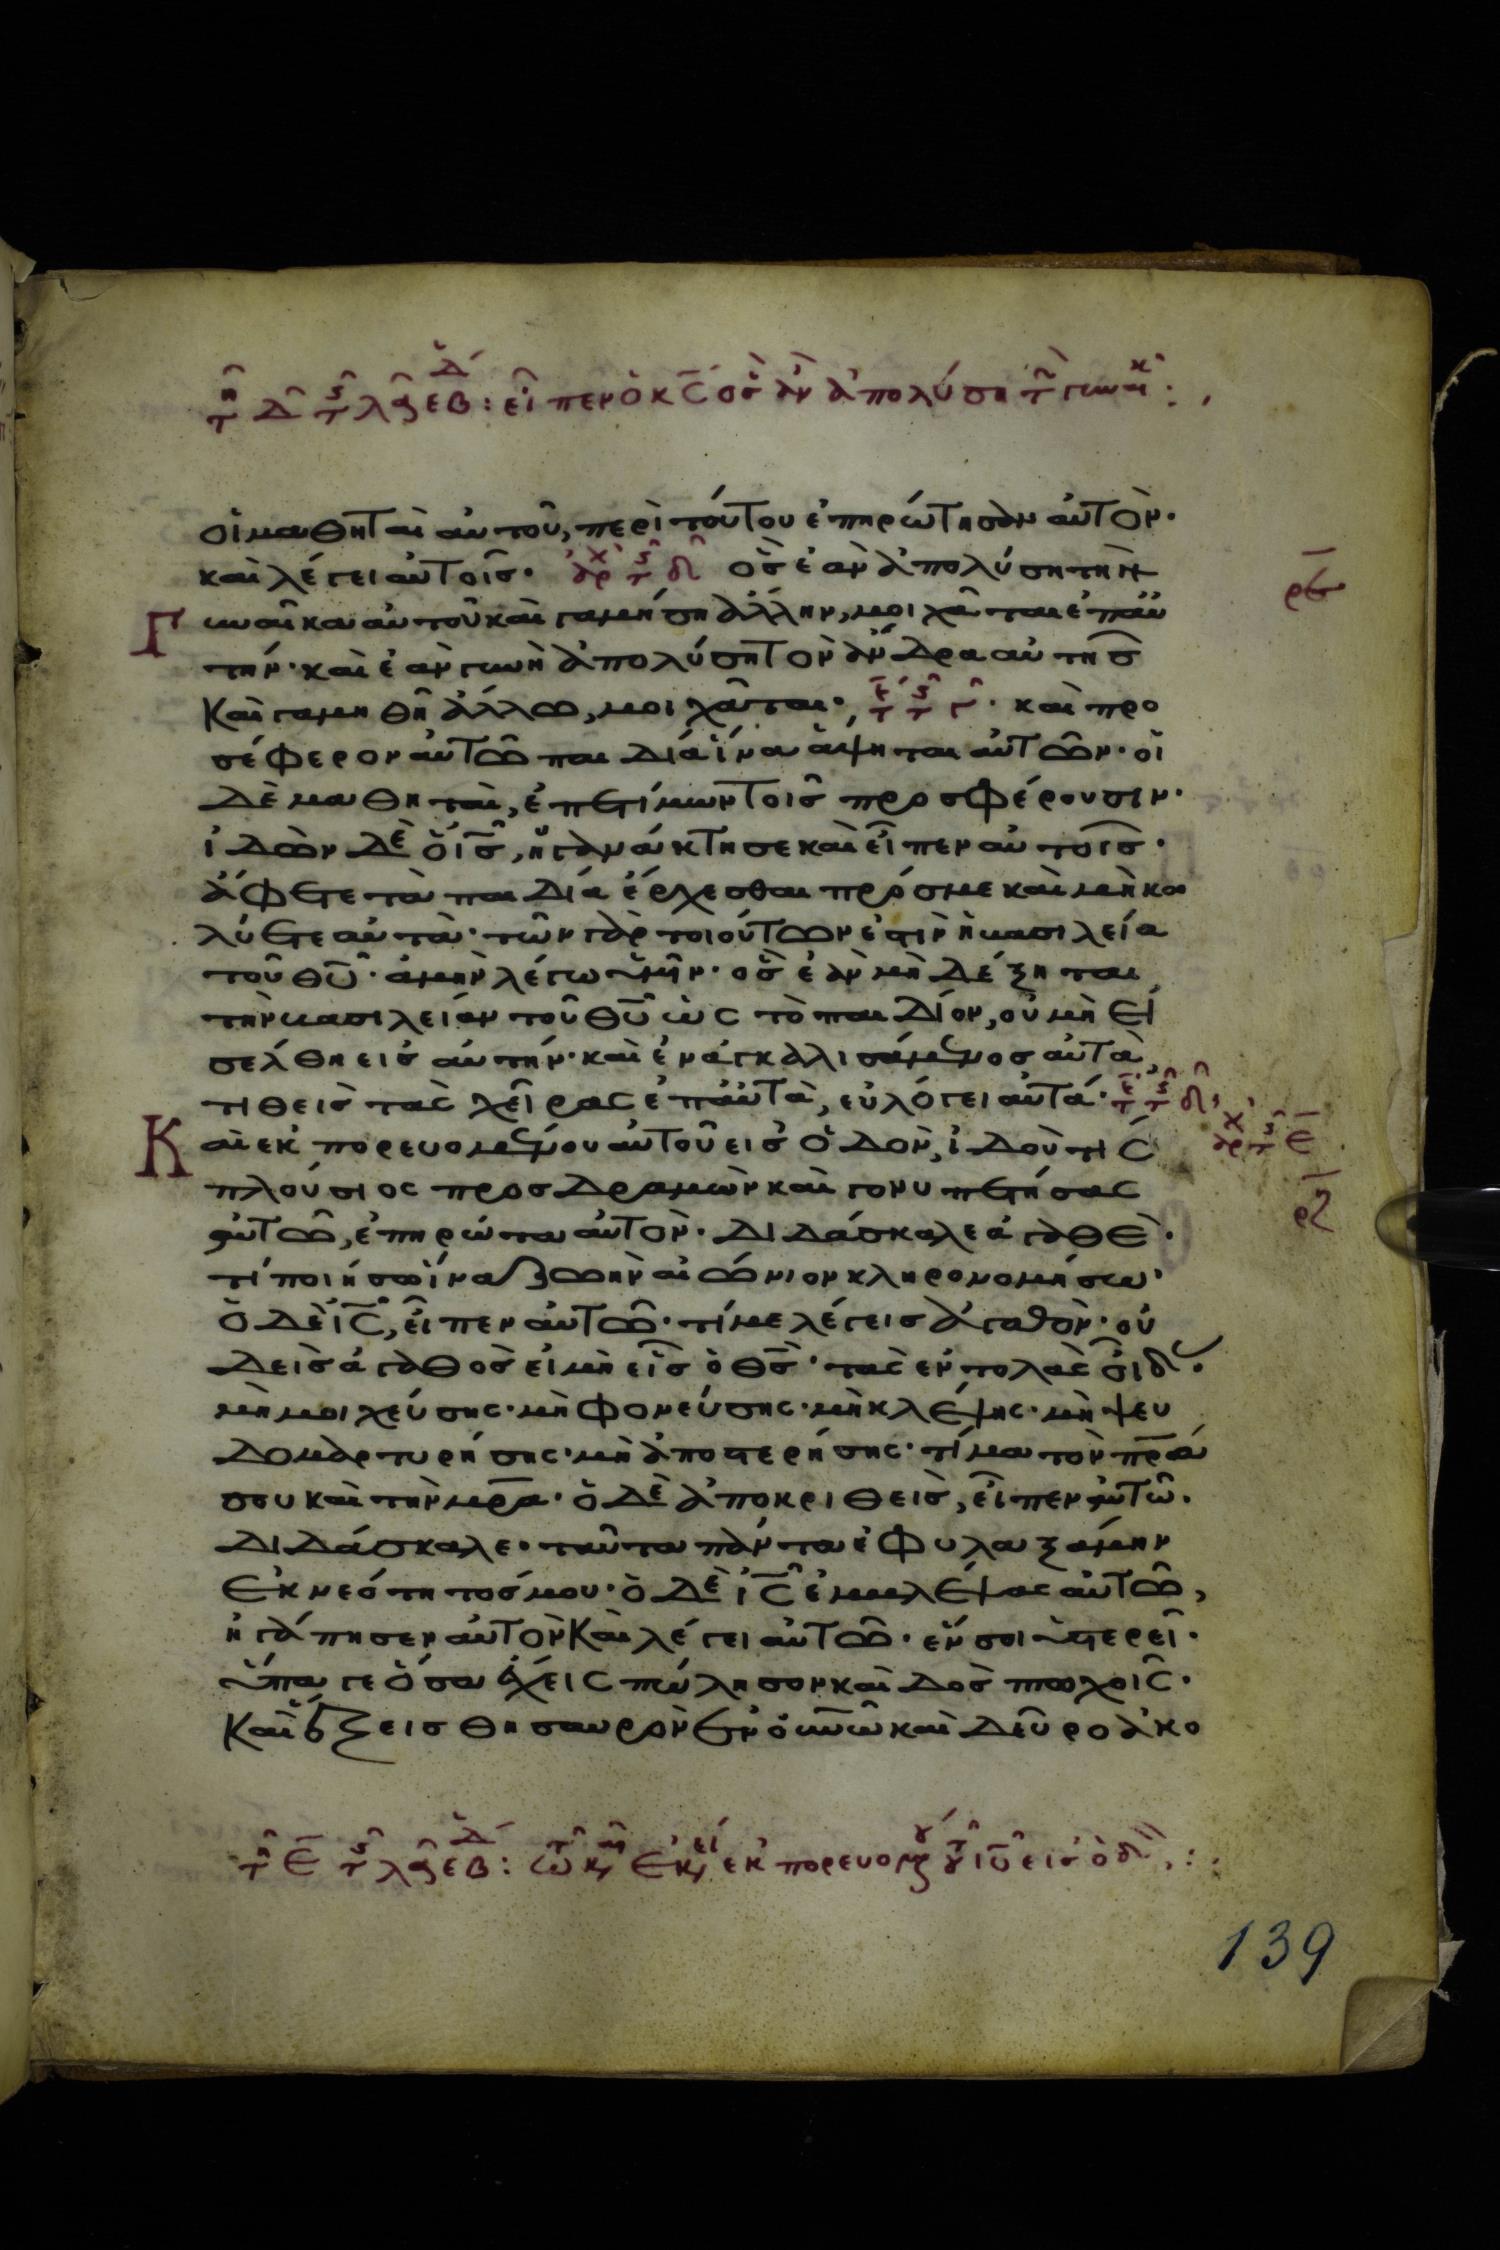 τῆ Δ τ ς λς εβδ : εἶπεν ὁ κς ὃς ἂν ἀπολύση τ γυναικ :
οἱ μαθηταὶ αὐτοῦ, περὶ τούτου ἐπηρώτησαν αὐτόν·
καὶ λέγει αὐτοῖς· ἀρχ τ ς δ ὃς ἐὰν ἀπολύση τὴν
ρε
γυναῖκα αὐτοῦ καὶ γαμήση ἄλλην, μοιχᾶται ἐπαὐ
τήν· καὶ ἐὰν γυνὴ ἀπολύση τὸν ἄνδρα αὐτῆς
Καὶ γαμηθῆ ἄλλω, μοιχᾶται· τε τ ς γ· καὶ προ
σέφερον αὐτῶ παιδία ἵνα ἅψηται αὐτῶν· οἱ
δὲ μαθηταὶ, ἐπετίμων τοῖς προσφέρουσιν·
ἰδὼν δὲ ὁ ις, ἠγανάκτησε καὶ εἶπεν αὐτοῖς·
ἄφετε τὰ παιδία ἔρχεσθαι πρόσμε καὶ μὴ κω
λύετε αὐτὰ· τῶν γὰρ τοιούτων ἐστὶν ἡ βασιλεία
τοῦ θυ· ἀμὴν λέγω ὑμῖν· ὃς ἐὰν μὴ δέξηται
τὴν βασιλείαν τοῦ θυ ὡς τὸ παιδίον, οὐ μὴ εἰ
σέλθη εἰς αὐτήν· καὶ ἐναγκαλισάμενος αὐτὰ,
τιθεὶς τὰς χεῖρας ἐπαὐτὰ, εὐλόγει αὐτά· τε τ ς δ,
Καὶ ἐκπορευομένου αὐτοῦ εἰς ὁδὸν, ἰδοὺ τὶς
ἀρχ τ ς ε
πλούσιος προσδραμὼν καὶ γονυπετήσας
ρζ
αὐτῶ, ἐπηρώτα αὐτὸν· διδάσκαλε ἀγαθὲ·
τί ποιήσω ἵνα ζωὴν αἰώνιον κληρονομήσω·
ὁ δὲ ις, εἶπεν αὐτῶ· τί με λέγεις ἀγαθὸν· οὐ
δεὶς ἀγαθὸς εἰ μὴ εἷς ὁ θς· τὰς ἐντολὰς οἶδ·
μὴ μοιχεύσης· μὴ φονεύσης· μὴ κλέψης· μὴ ψευ
δομαρτυρήσης· μὴ ἀποστερήσης· τίμα τὸν πρα
σου καὶ τὴν μρα· ὁ δὲ ἀποκριθεὶς, εἶπεν αὐτῶ·
διδάσκαλε· ταῦτα πάντα ἐφυλαξάμην
ἐκ νεότητός μου· ὁ δὲ ις ἐμβλέψας αὐτῶ,
ἠγάπησεν αὐτὸν Καὶ λέγει αὐτῶ· ἕν σοι ὑστερεῖ·
ὕπαγε ὅσα ἔχεις πώλησον καὶ δὸς πτωχοῖς·
Καὶ ἕξεις θησαυρὸν ἐν οὐνῶ καὶ δεῦρο ἀκο
τῆ Ε τ ς λς εβδ : τω κ ἐκ ἐκπορευομ τοῦ ιυ εἰς ὁδ :
139